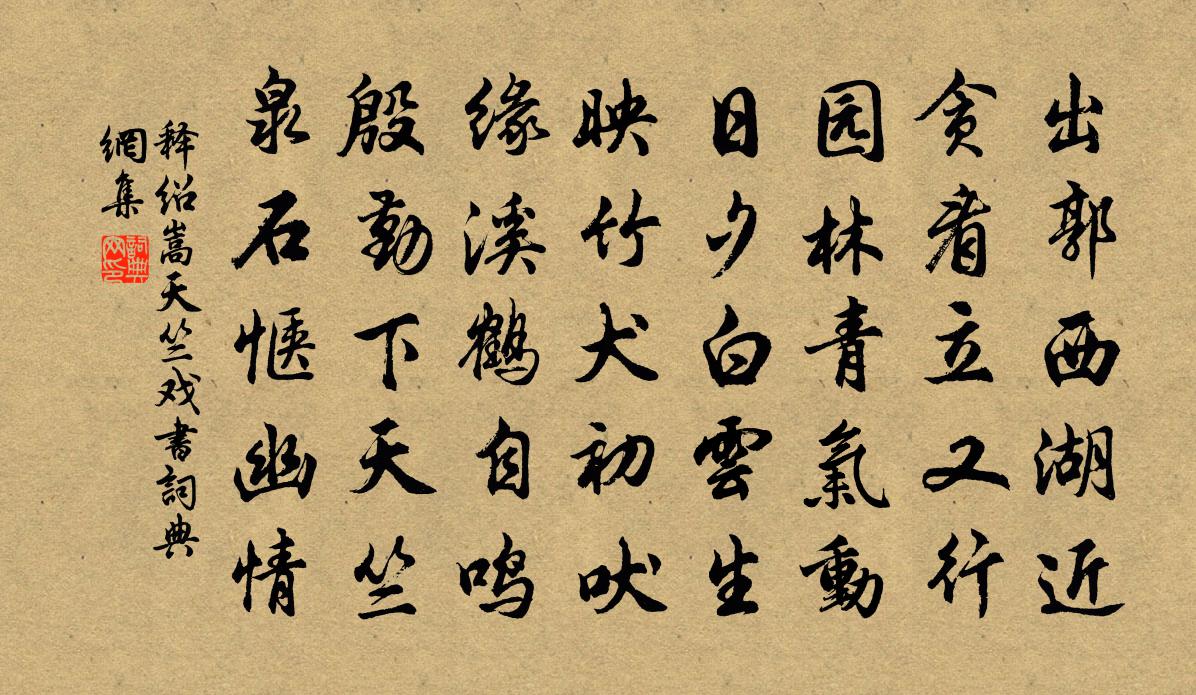 出郭西湖近
贪看立又行
园林青氣動
日夕白雲生
映竹犬初吠
缘溪鶴自鸣
殷勤下天竺
泉石惬幽情
释绍嵩天竺戏書詞典
網集
詞典
网印